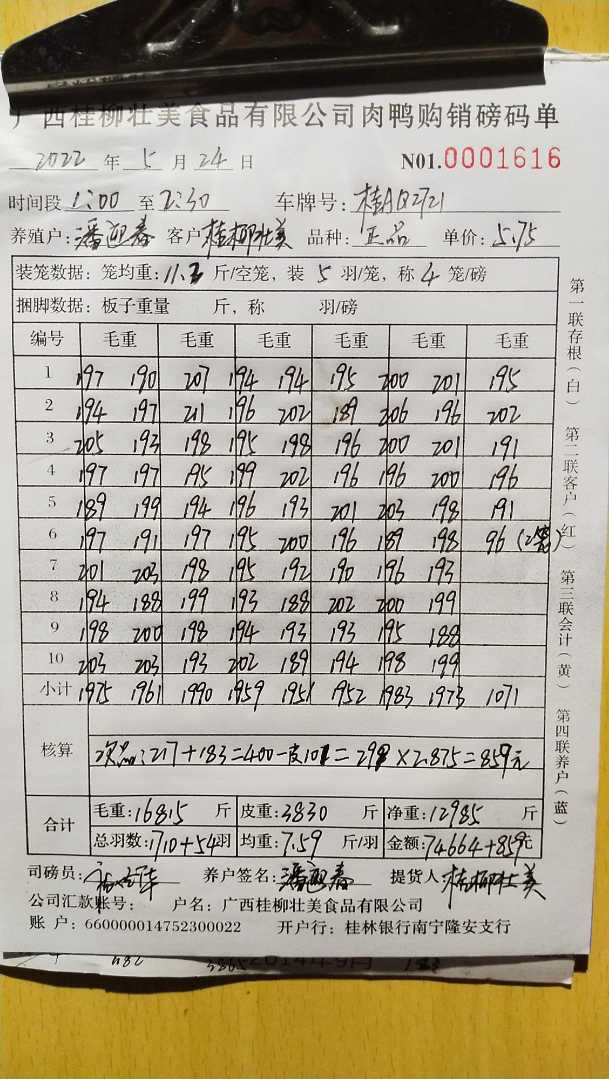 广西桂柳壮美食品有限公司肉鸭购销磅码单
2022 年 5 月 24 日 N01.0001616
时间段 1:00 至 2:30 车牌号: 桂AQ2721
养殖户: 潘迎春 客户 桂柳壮美 品种: 正品 单价: 5.75
装笼数据: 笼均重: 11.2 斤/空笼, 装 5 羽/笼, 称 4 笼/磅
捆脚数据: 板子重量 斤, 称 羽/磅
编号 毛重 毛重 毛重 毛重 毛重 毛重
1 197 190 207 194 194 195 200 201 195
2 194 197 211 196 202 189 206 196 202
3 205 193 198 195 198 196 200 201 191
4 197 197 195 199 202 196 196 200 196
5 189 199 194 196 193 201 203 198 191
6 197 191 197 195 200 196 189 198 96 (2笼)
7 201 203 198 195 192 190 196 193
8 194 188 199 193 188 202 200 199
9 198 200 198 194 193 193 195 188
10 203 203 193 202 189 194 198 199
小计 1975 1961 1990 1959 1951 1952 1983 1973 1071
核算 次品: 217+183=400-皮101=299×2.875=859元
合计 毛重: 16815 斤 皮重: 3830 斤 净重: 12985 斤
总羽数: 1710+54羽 均重: 7.59 斤/羽 金额: 74664+859元
司磅员: 养户签名: 潘迎春 提货人 桂柳壮美
公司汇款账号: 户名: 广西桂柳壮美食品有限公司
账户: 660000014752300022 开户行: 桂林银行南宁隆安支行
第一联存根(白) 第二联客户(红) 第三联会计(黄) 第四联养户(蓝)